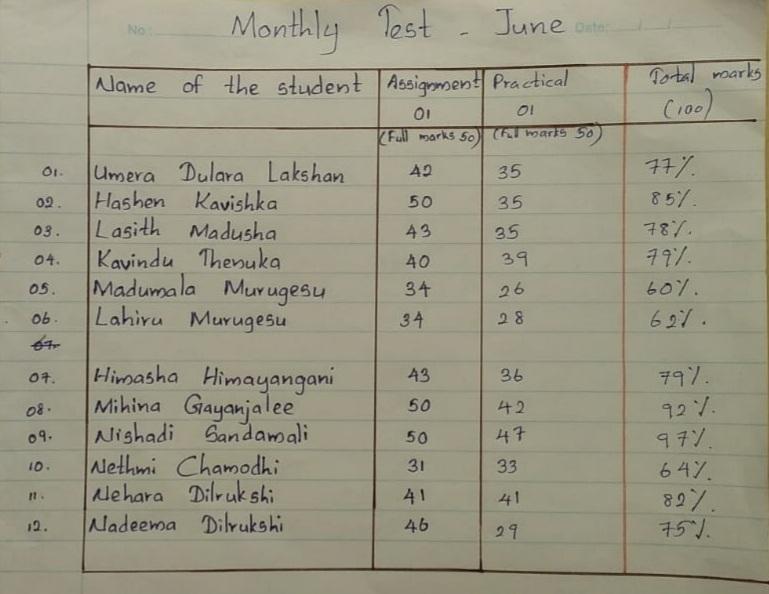 No: Monthly Test - June Date: / /
Name of the student Assignment Practical Total marks
01 01 (100)
(Full marks 50) (Full marks 50)
01. Umera Dulara Lakshan 42 35 77%.
02. Hashen Kavishka 50 35 85%.
03. Lasith Madusha 43 35 78%.
04. Kavindu Thenuka 40 39 79%.
05. Madumala Murugesu 34 26 60%.
06. Lahiru Murugesu 34 28 62%.
07.
07. Himasha Himayangani 43 36 79%.
08. Mihina Gayanjalee 50 42 92%.
09. Nishadi Sandamali 50 47 97%.
10. Nethmi Chamodhi 31 33 64%.
11. Nehara Dilrukshi 41 41 82%.
12. Nadeema Dilrukshi 46 29 75%.